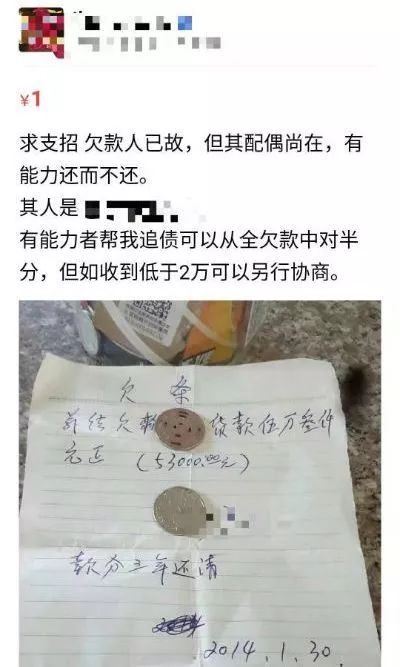 ¥1
求支招 欠款人已故，但其配偶尚在，有
能力还而不还。
其人是
有能力者帮我追债可以从全欠款中对半
分，但如收到低于2万可以另行协商。
欠 条
兹结欠 货款伍万叁仟
元正 （53000.00元）
款分三年还清
2014.1.30